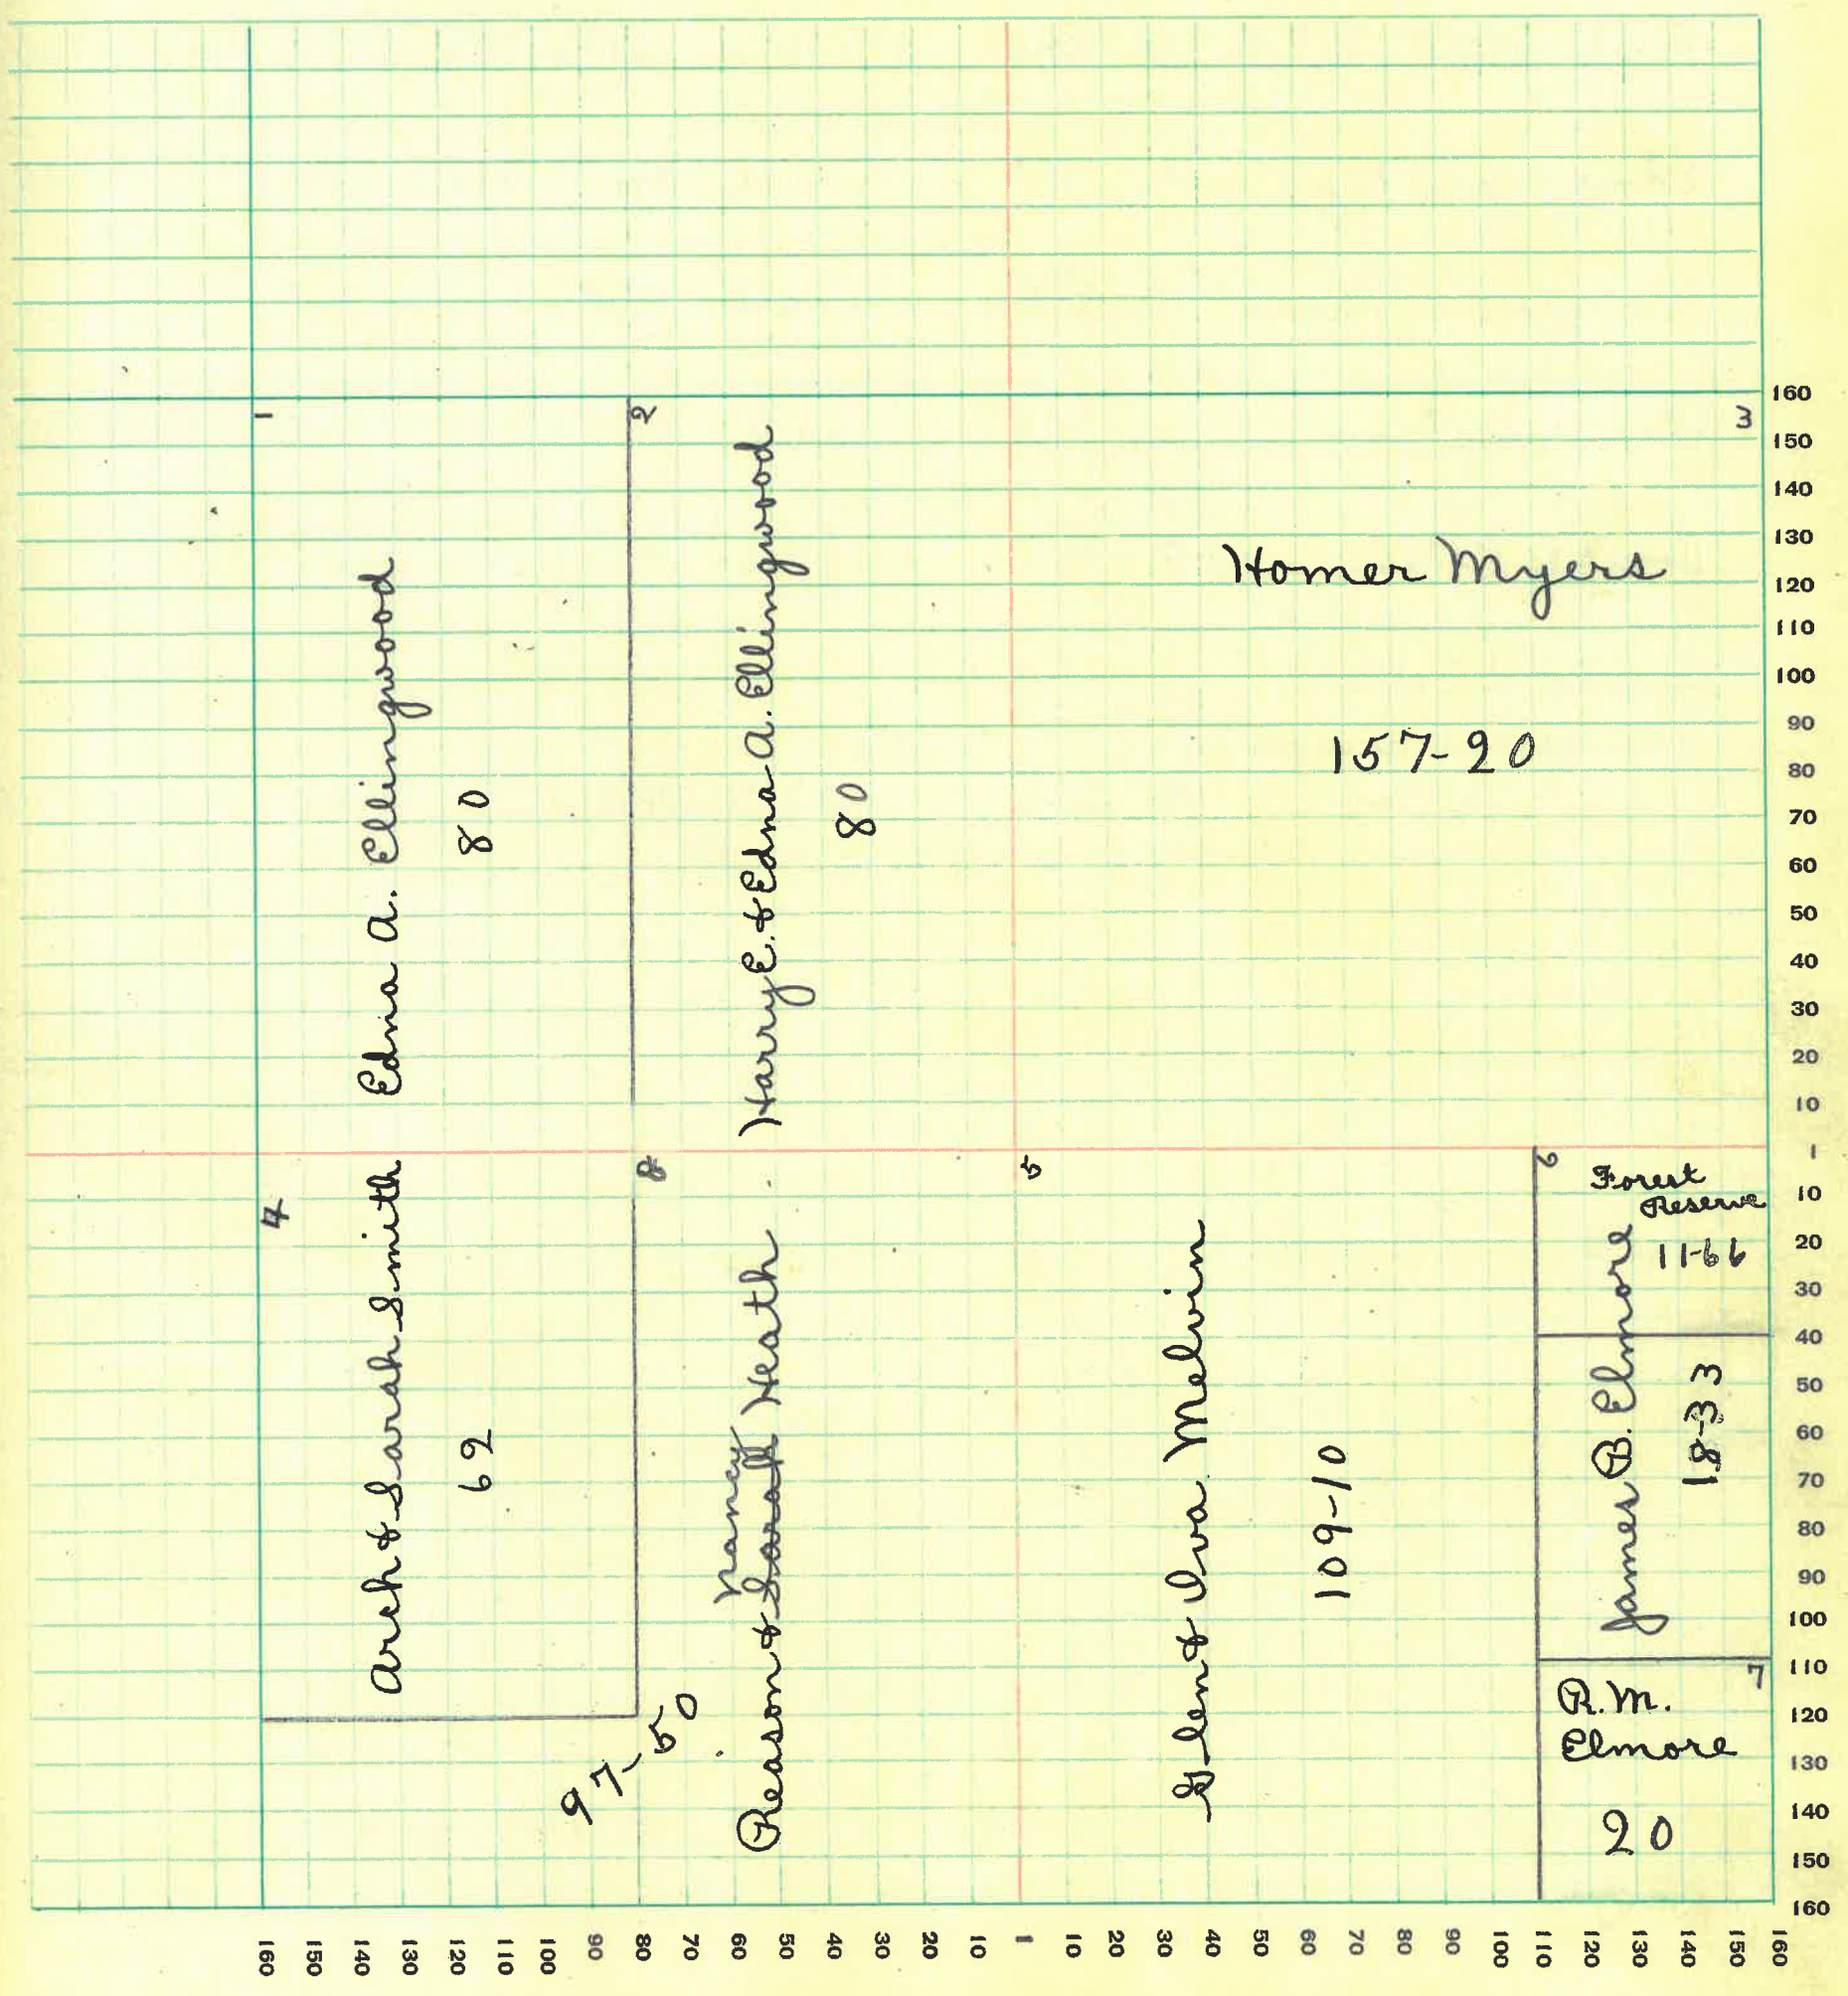 1
2
3
Edna A. Ellingwood
80
Harry E. & Edna A. Ellingwood
80
Homer Myers
157-20
4
Arch & Sarah Smith
62
8
Nancy
Reason & Sarah Heath
97-50
5
Glen & Iva Melvin
109-10
6
Forest
Reserve
11-66
James B. Elmore
18-33
7
R. M.
Elmore
20
160
150
140
130
120
110
100
90
80
70
60
50
40
30
20
10
1
10
20
30
40
50
60
70
80
90
100
110
120
130
140
150
160
160 150 140 130 120 110 100 90 80 70 60 50 40 30 20 10 1 10 20 30 40 50 60 70 80 90 100 110 120 130 140 150 160